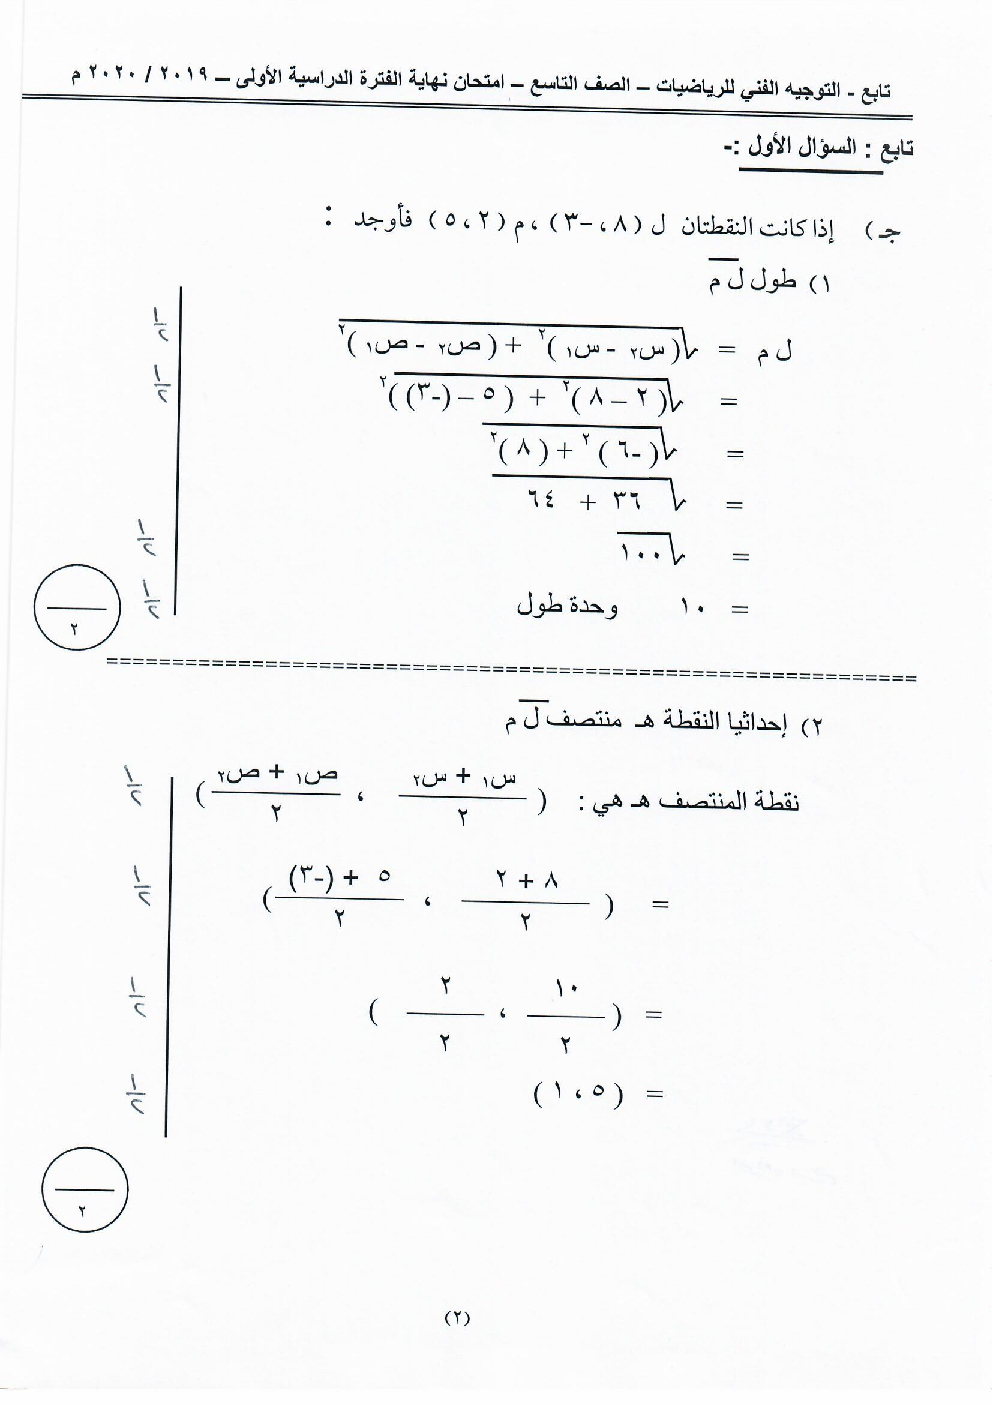 تابع - التوجيه الفني للرياضيات – الصف التاسع – امتحان نهاية الفترة الدراسية الأولى – ٢٠١٩ / ٢٠٢٠ م
تابع : السؤال الأول :-
جـ) إذا كانت النقطتان ل ( ٨ ، -٣ ) ، م ( ٢ ، ٥ ) فأوجد :
١) طول ل م
ل م = √( س٢ - س١ )٢ + ( ص٢ - ص١ )٢
= √( ٢ – ٨ )٢ + ( ٥ – (-٣) )٢
= √( -٦ )٢ + ( ٨ )٢
= √ ٣٦ + ٦٤
= √١٠٠
= ١٠ وحدة طول
١/٢
١/٢
١/٢
١/٢
٢
٢) إحداثيا النقطة هـ منتصف ل م
نقطة المنتصف هـ هي : ( س١ + س٢ / ٢ ، ص١ + ص٢ / ٢ )
= ( ٨ + ٢ / ٢ ، ٥ + (-٣) / ٢ )
= ( ١٠ / ٢ ، ٢ / ٢ )
= ( ٥ ، ١ )
١/٢
١/٢
١/٢
١/٢
٢
(٢)